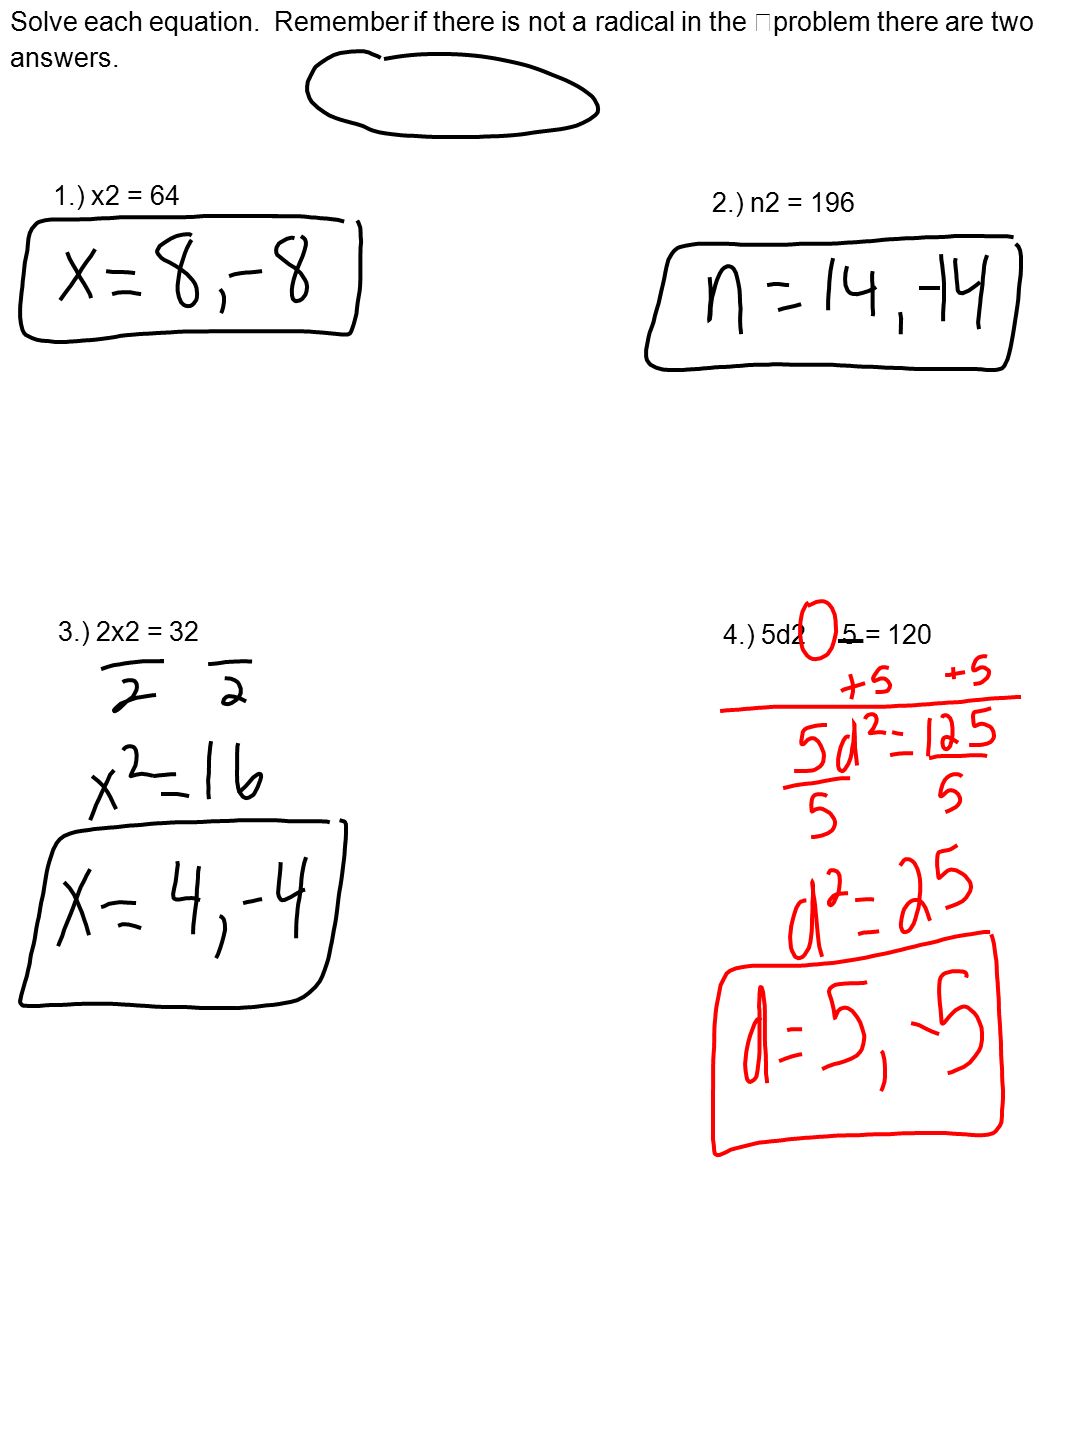 Solve each equation.  Remember if there is not a radical in the problem there are two
answers.
1.) x2 = 64
x = 8, -8
2.) n2 = 196
n = 14, -14
3.) 2x2 = 32
2 2
x² = 16
x = 4, -4
4.) 5d2 5 = 120
+5 +5
5d² = 125
5 5
d² = 25
d = 5, -5